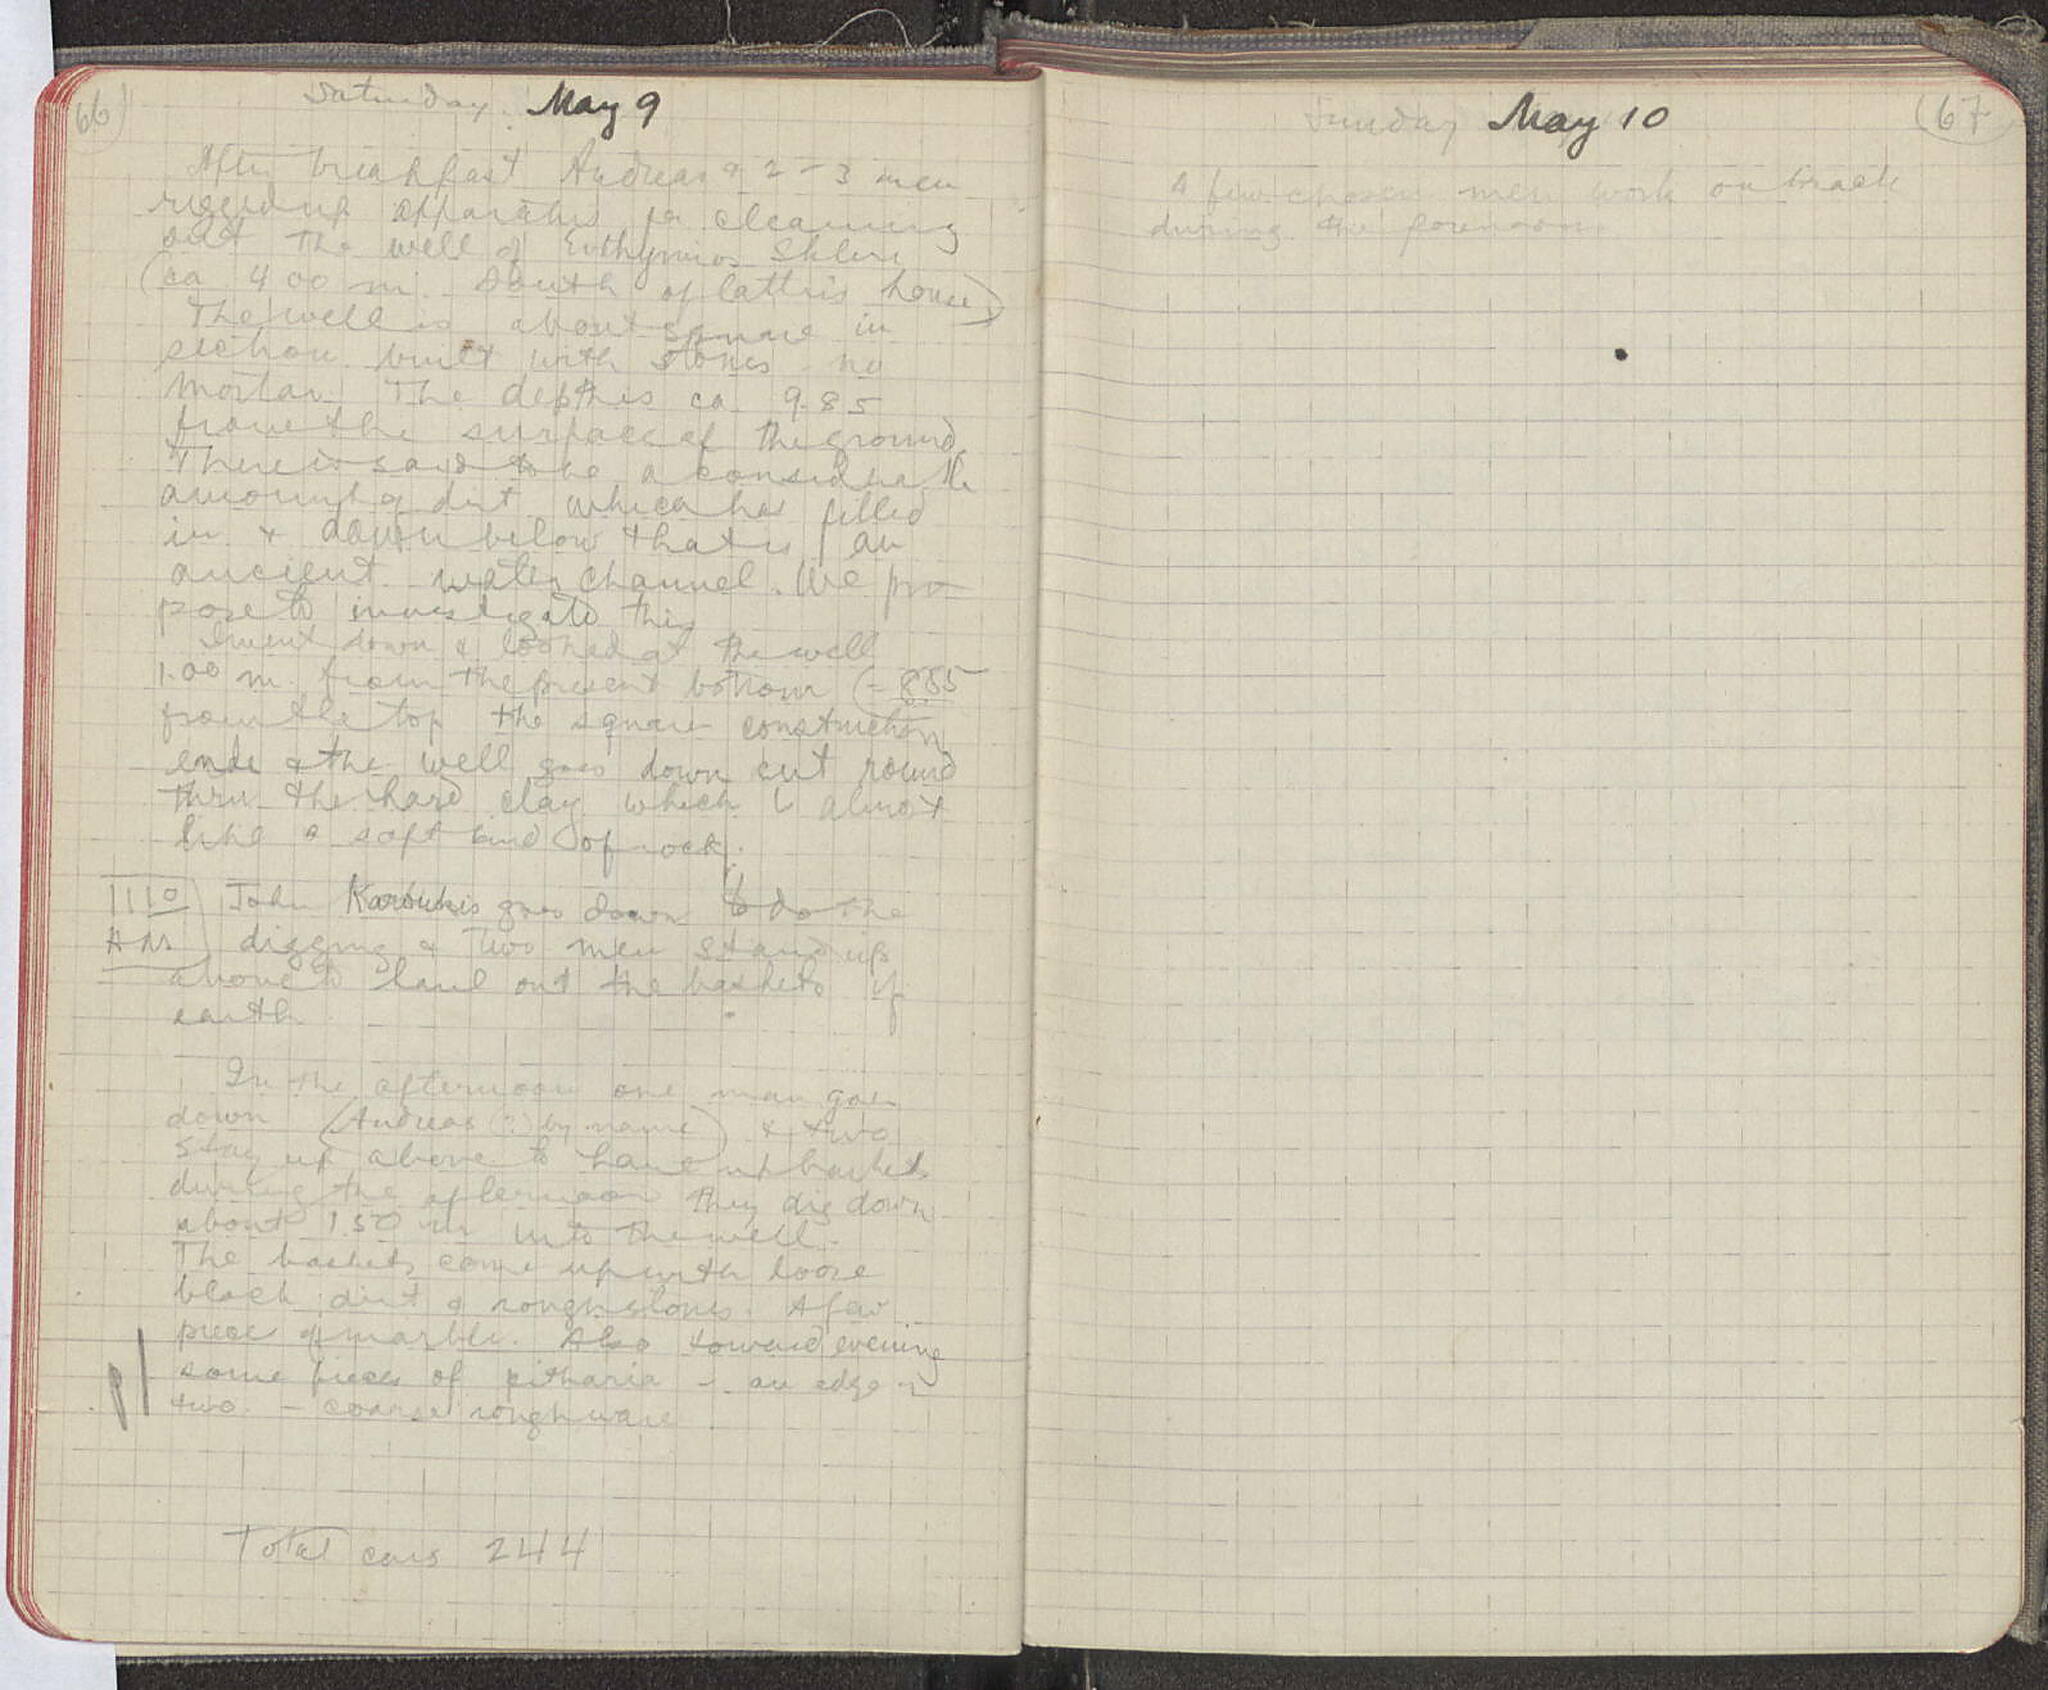 66
Saturday. May 9
After breakfast Andreas & 2-3 men
rigged up apparatus for cleaning
out the well of Euthymios
(ca 400 m. South of Cattris house)
The well is about square in
section built with stones no
mortar. The depth is ca. 9.85
from the surface of the ground.
There is said to be a considerable
amount of dirt which has filled
in & down below that is an
ancient water channel. We pro-
pose to investigate this
I went down & looked at the well
1.00 m. from the present bottom (= 8.85
from the top the square construction
ends & the well goes down cut round
thru the hard clay which is almost
like a soft kind of rock.
11 10 John Karoukis goes down to do the
A M digging & two men stand up
above to haul out the baskets of
earth
In the afternoon one man goes
down (Andreas (?) by name) & two
stay up above to haul up baskets
during the afternoon they dig down
about 1.50 m into the well.
The baskets come up with loose
black dirt & rough stones. A few
piece of marble. Also toward evening
some pieces of pitharia - an edge or
two - coarse rough ware
Total cars 244
67
Sunday May 10
A few chosen men work on track
during the forenoon.